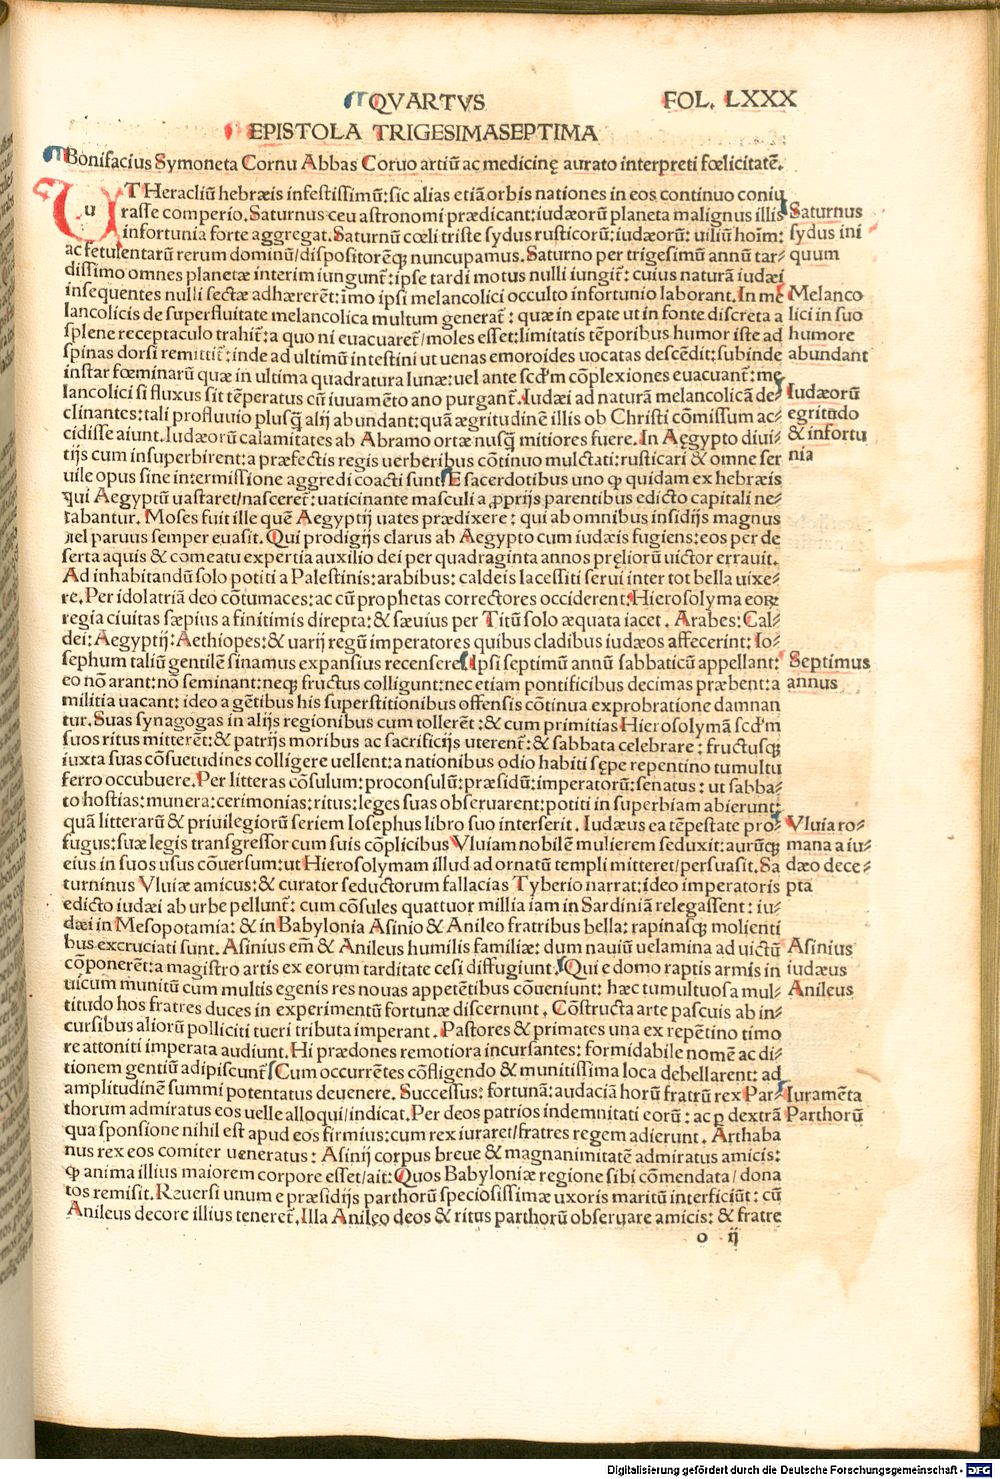 QVARTVS
FOL. LXXX
EPISTOLA TRIGESIMASEPTIMA
Bonifacius Symoneta Cornu Abbas Coruo artiū ac medicinę aurato interpreti fœlicitatē.
UT Heracliū hebræis infestissimū: sic alias etiā orbis nationes in eos continuo coniu
rasse comperio. Saturnus ceu astronomi prædicant: iudæorū planeta malignus illis
infortunia forte aggregat. Saturnū cœli triste sydus rusticorū: iudæorū: uiliū hoīm:
ac fetulentarū rerum dominū/dispositorēqꝫ nuncupamus. Saturno per trigesimū annū tar⸗
dissimo omnes planetæ interim iungunt̄: ipse tardi motus nulli iungit̄: cuius naturā iudæi
insequentes nulli sectæ adhærerēt: īmo ipsi melancolici occulto infortunio laborant. In me
lancolicis de superfluitate melancolica multum generat̄: quæ in epate ut in fonte discreta a
splene receptaculo trahit̄: a quo ni euacuaret̄/moles esset: limitatis tēporibus humor iste ad
spinas dorsi remittit̄: inde ad ultimū intestini ut uenas emoroides uocatas descēdit: subinde
instar fœminarū quæ in ultima quadratura lunæ: uel ante scd'm cōplexiones euacuant̄: me
lancolici si fluxus sit tēperatus cū iuuamēto ano purgant̄. Iudæi ad naturā melancolicā de⸗
clinantes: tali profluuio plusq̄ alij abundant: quā ægritudinē illis ob Christi cōmissum ac⸗
cidisse aiunt. Iudæorū calamitates ab Abramo ortæ nusq̄ mitiores fuere. In Aegypto diui⸗
tijs cum insuperbirent: a præfectis regis uerberibus cōtinuo mulctati: rusticari & omne ser
uile opus sine intermissione aggredi coacti sunt. E sacerdotibus uno ꝙ quidam ex hebræis
qui Aegyptū uastaret/nasceret̄: uaticinante masculi a ꝓprijs parentibus edicto capitali ne⸗
cabantur. Moses fuit ille quē Aegyptij uates prædixere: qui ab omnibus insidijs magnus
uel paruus semper euasit. Qui prodigijs clarus ab Aegypto cum iudæis fugiens: eos per de
serta aquis & comeatu expertia auxilio dei per quadraginta annos pręliorū uictor errauit.
Ad inhabitandū solo potiti a Palestinis: arabibus: caldeis lacessiti serui inter tot bella uixe⸗
re. Per idolatriā deo cōtumaces: ac cū prophetas correctores occiderent: Hierosolyma eorꝝ
regia ciuitas sæpius a finitimis direpta: & sæuius per Titū solo æquata iacet. Arabes: Cal⸗
dei: Aegyptij: Aethiopes: & uarij regū imperatores quibus cladibus iudæos affecerint: Io⸗
sephum taliū gentilē sinamus expansius recensere. Ipsi septimū annū sabbaticū appellant:
eo nō arant: nō seminant: neqꝫ fructus colligunt: nec etiam pontificibus decimas præbent: a
militia uacant: ideo a gētibus his superstitionibus offensis cōtinua exprobratione damnan
tur. Suas synagogas in alijs regionibus cum tollerēt: & cum primitias Hierosolymā scd'm
suos ritus mitterēt: & patrijs moribus ac sacrificijs uterent̄: & sabbata celebrare: fructusqꝫ
iuxta suas cōsuetudines colligere uellent: a nationibus odio habiti sępe repentino tumultu
ferro occubuere. Per litteras cōsulum: proconsulū: præsidū: imperatorū: senatus: ut sabba⸗
to hostias: munera: cerimonias: ritus: leges suas obseruarent: potiti in superbiam abierunt:
quā litterarū & priuilegiorū seriem Iosephus libro suo interserit. Iudæus ea tēpestate pro⸗
fugus: suæ legis transgressor cum suis cōplicibus Vluiam nobilē mulierem seduxit: aurūqꝫ
eius in suos usus cōuersum: ut Hierosolymam illud ad ornatū templi mitteret/persuasit. Sa
turninus Vluiæ amicus: & curator seductorum fallacias Tyberio narrat: ideo imperatoris
edicto iudæi ab urbe pellunt̄: cum cōsules quattuor millia iam in Sardiniā relegassent: iu⸗
dæi in Mesopotamia: & in Babylonia Asinio & Anileo fratribus bella: rapinasqꝫ molienti
bus excruciati sunt. Asinius em̄ & Anileus humilis familiæ: dum nauiū uelamina ad uictū
cōponerēt: a magistro artis ex eorum tarditate cesi diffugiunt. Qui e domo raptis armis in
uicum munitū cum multis egenis res nouas appetētibus cōueniunt: hæc tumultuosa mul⸗
titudo hos fratres duces in experimentū fortunæ discernunt. Cōstructa arte pascuis ab in⸗
cursibus aliorū polliciti tueri tributa imperant. Pastores & primates una ex repētino timo
re attoniti imperata audiunt. Hi prædones remotiora incursantes: formidabile nomē ac di⸗
tionem gentiū adipiscunt̄. Cum occurrētes cōfligendo & munitissima loca debellarent: ad
amplitudinē summi potentatus deuenere. Successus: fortunā: audaciā horū fratrū rex Par⸗
thorum admiratus eos uelle alloqui/indicat. Per deos patrios indemnitati eorū: ac ꝑ dextrā
qua sponsione nihil est apud eos firmius: cum rex iuraret/fratres regem adierunt. Arthaba
nus rex eos comiter ueneratus: Asinij corpus breue & magnanimitatē admiratus amicis:
ꝙ anima illius maiorem corpore esset/ait: Quos Babyloniæ regione sibi cōmendata/dona
tos remisit. Reuersi unum e præsidijs parthorū speciosissimæ uxoris maritū interficiūt: cū
Anileus decore illius teneret̄. Illa Anileo deos & ritus parthorū obseruare amicis: & fratre
o ij
Saturnus
sydus ini
quum
Melanco
lici in suo
humore
abundant
Iudæorū
egritudo
& infortu
nia
Septimus
annus
Vluia ro⸗
mana a iu⸗
dæo dece⸗
pta
Asinius
iudæus
Anileus
Iuramēta
Parthorū
Digitalisierung gefördert durch die Deutsche Forschungsgemeinschaft - DFG